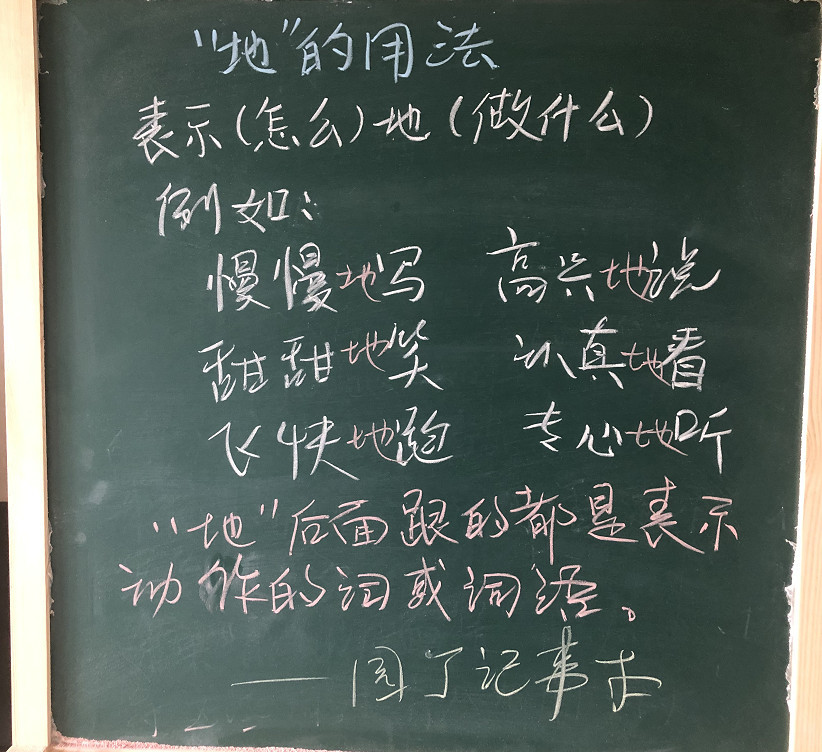 “地”的用法
表示(怎么)地(做什么)
例如:
慢慢地写 高兴地说
甜甜地笑 认真地看
飞快地跑 专心地听
“地”后面跟的都是表示
动作的词或词语。
——园丁记事本